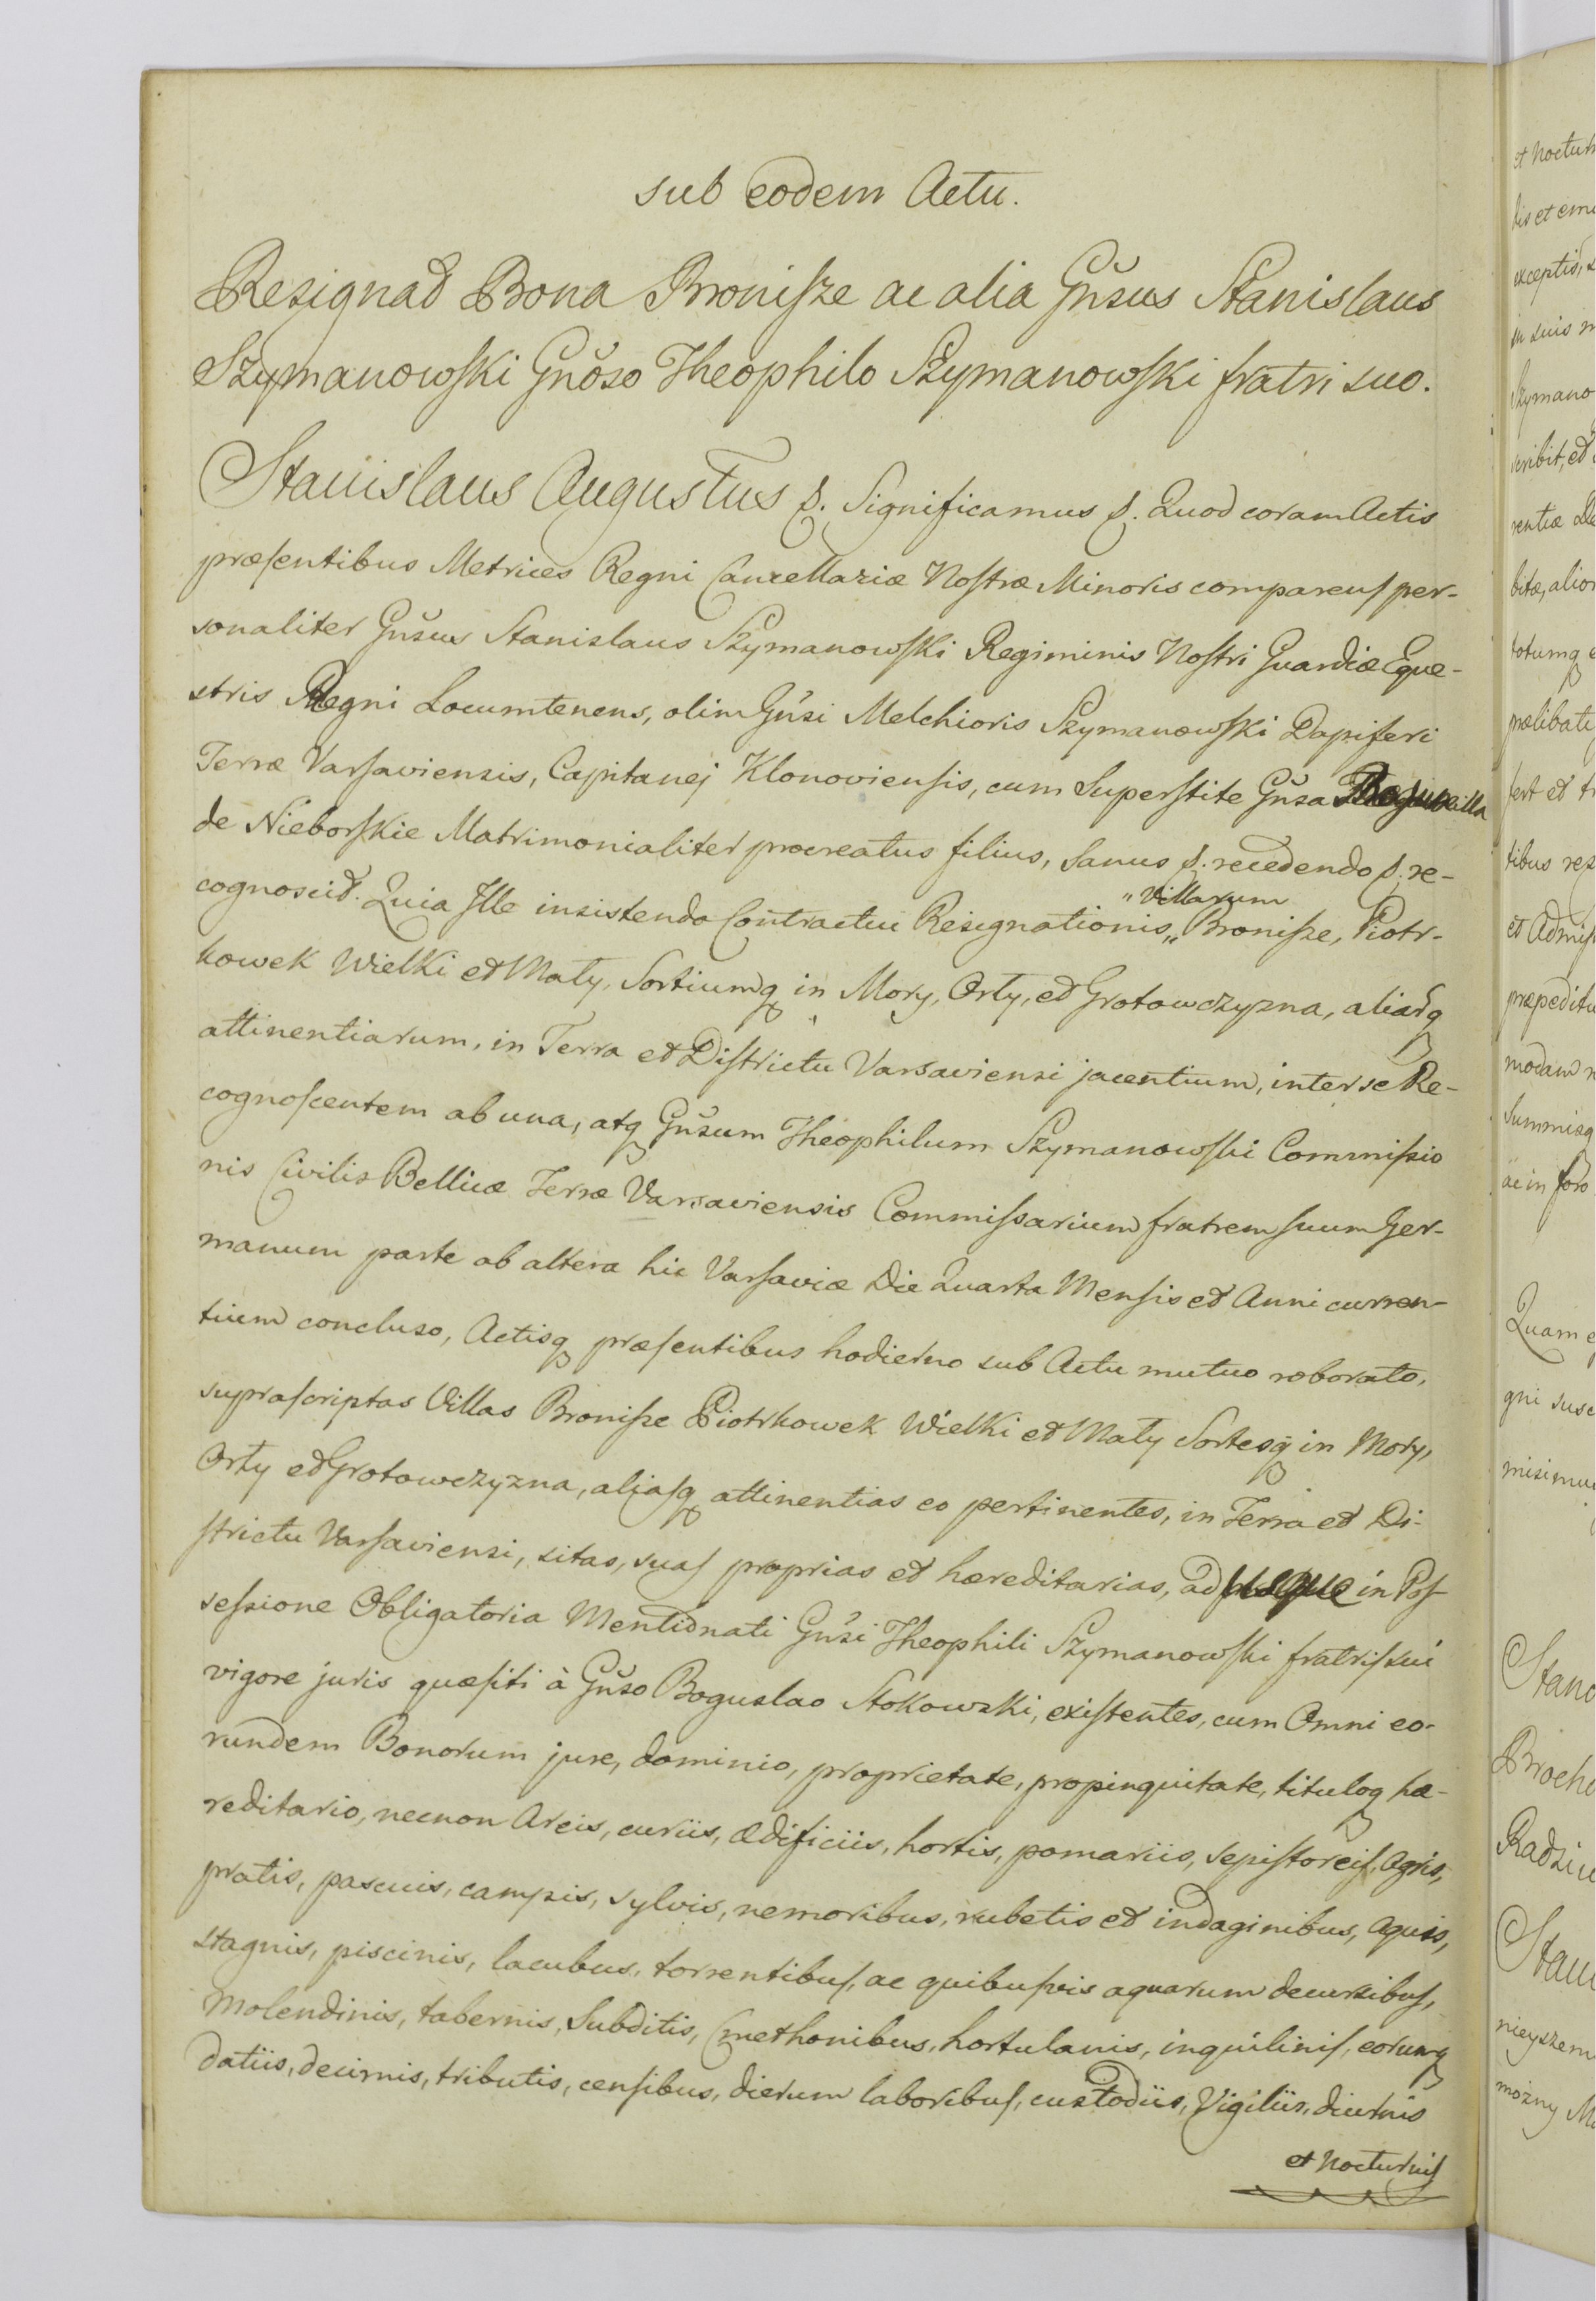 sub eodem Actu.
Resignat Bona Broniſze ac alia Gnŝus Stanislaus
Szymanowſki Gnôso Theophilo Szymanowſki fratri suo.
Stanislaus Augustus &. Significamus &. Quod coram Actis
præſentibus Metrices Regni Cancellariæ Noſtræ Minoris comparenſ per-
sonaliter Gnŝus Stanislaus Szymanowſki Regiminis Noſtri Guardiæ Eque-
stris Regni Locumtenens, olim Gnŝi Melchioris Szymanowſki Dapiferi
Terræ Varſaviensis, Capitanej Klonovienſis, cum Superſtite Gnŝa
de Nieborſkie Matrimonialiter procreatus filius, Sanus &. recedendo &. re-
cognoscit. Quia Ille insistendo Contractui Resignationis „ Broniſze, Piotr-
„ Villarum
kowek Wielki et Mały, Sortiumq in Mory, Orły, et Grotowczyzna, aliarq
attinentiarum, in Terra et Diſtrictu Varsaviensi jacentium, inter se Re-
cognoſcentem ab una, atq Gnŝum Theophilum Szymanowſki Commiſsio
nis Civilis Bellicæ Terræ Varsaviensis Commiſsarium fratrem ſuum Ger-
manum parte ab altera hic Varſaviæ Die Quarta Menſis et Anni curren-
tium concluso, Actisq præſentibus hodierno sub Actu mutuo roborato,
supraſcriptas Villas Broniſze Piotrkowek Wielki et Mały Sortesq in Mory,
Orły et Grotowczyzna, aliaſq attinentias eo pertinentes, in Terra et Di-
ſtrictu Varſaviensi, sitas, suaſ proprias et hæreditarias, ad usque in Poſ
seſsione Obligatoria Mentionati Gnŝi Theophili Szymanowſki fratriſ sui
vigore juris quæſiti à Gnŝo Boguslao Stokowski, exiſtentes, cum Omni eo-
rundem Bonorum jure, dominio, proprietate, propinquitate, tituloq hæ-
reditario, necnon Areis, curiis, ædificiis, hortis, pomariis, Agris,
pratis, pascuis, campis, sylvis, nemoribus, rubetis et indaginibus, aquis,
stagnis, piscinis, lacubus, torrentibuſ, ac quibuſvis aquarum decursibuſ,
Molendinis, tabernis, Subditis, Cmethonibus, hortulanis, inquiliniſ, eorumq
datiis, decimis, tributis, cenſibus, dierum laboribuſ, custodiis, Vigiliis, diurnis
et Nocturniſ
et Noctur
exceptis,
in suis
Szymano
bitæ, alior
totumq
fert et tr
tibus
et Admiſ
modam
Summisq
ac in foro
Quam
gni susc
misimu
Stan
Radzi
Stan
możny